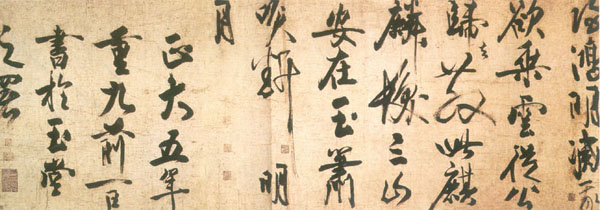 歸鴻明滅我
欲乘雲從公
歸去散此麒
麟髮三山
安在玉簫
吹斷明
月
正大五年
重九前一日
書於玉堂
之署